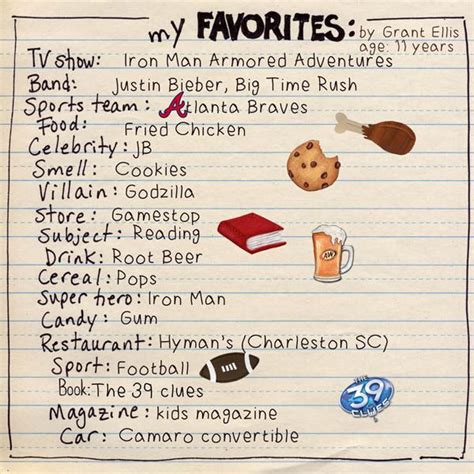 my FAVORITES: by Grant Ellis
age: 11 years
TV show: Iron Man Armored Adventures
Band: Justin Bieber, Big Time Rush
Sports team: Atlanta Braves
Food: Fried Chicken
Celebrity: JB
Smell: Cookies
Villain: Godzilla
Store: Gamestop
Subject: Reading
Drink: Root Beer
A&W
Cereal: Pops
Super hero: Iron Man
Candy: Gum
Restaurant: Hyman's (Charleston SC)
Sport: Football
Book: The 39 clues
THE
39
CLUES
Magazine: kids magazine
Car: Camaro convertible